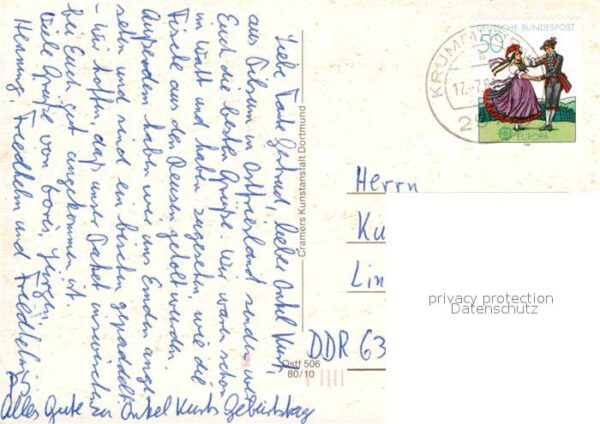 Liebe Tante Gertrud, lieber Onkel Kurt,
aus Pilsum in Ostfriesland senden wir
Euch die besten Grüße. Wir waren schon
im Watt und haben zugesehen, wie die
Fische aus den Reusen geholt wurden.
Außerdem haben wir uns Emden ange-
sehn und sind ein bischen gepaddelt
- Wir hoffen, dass unser Paket inzwischen
bei Euch gut angekommen ist.
Viele Grüße von Doris, Jürgen,
Henning, Friedhelm und
PS
Alles Gute zu Onkel Kurts Geburtstag
Cramers Kunstanstalt Dortmund
Ostf 506
80/10
DEUTSCHE BUNDESPOST
50
EUROPA
KRUMMH
17.-7.8
29
Herrn
Ku
Lin
DDR 63
privacy protection
Datenschutz